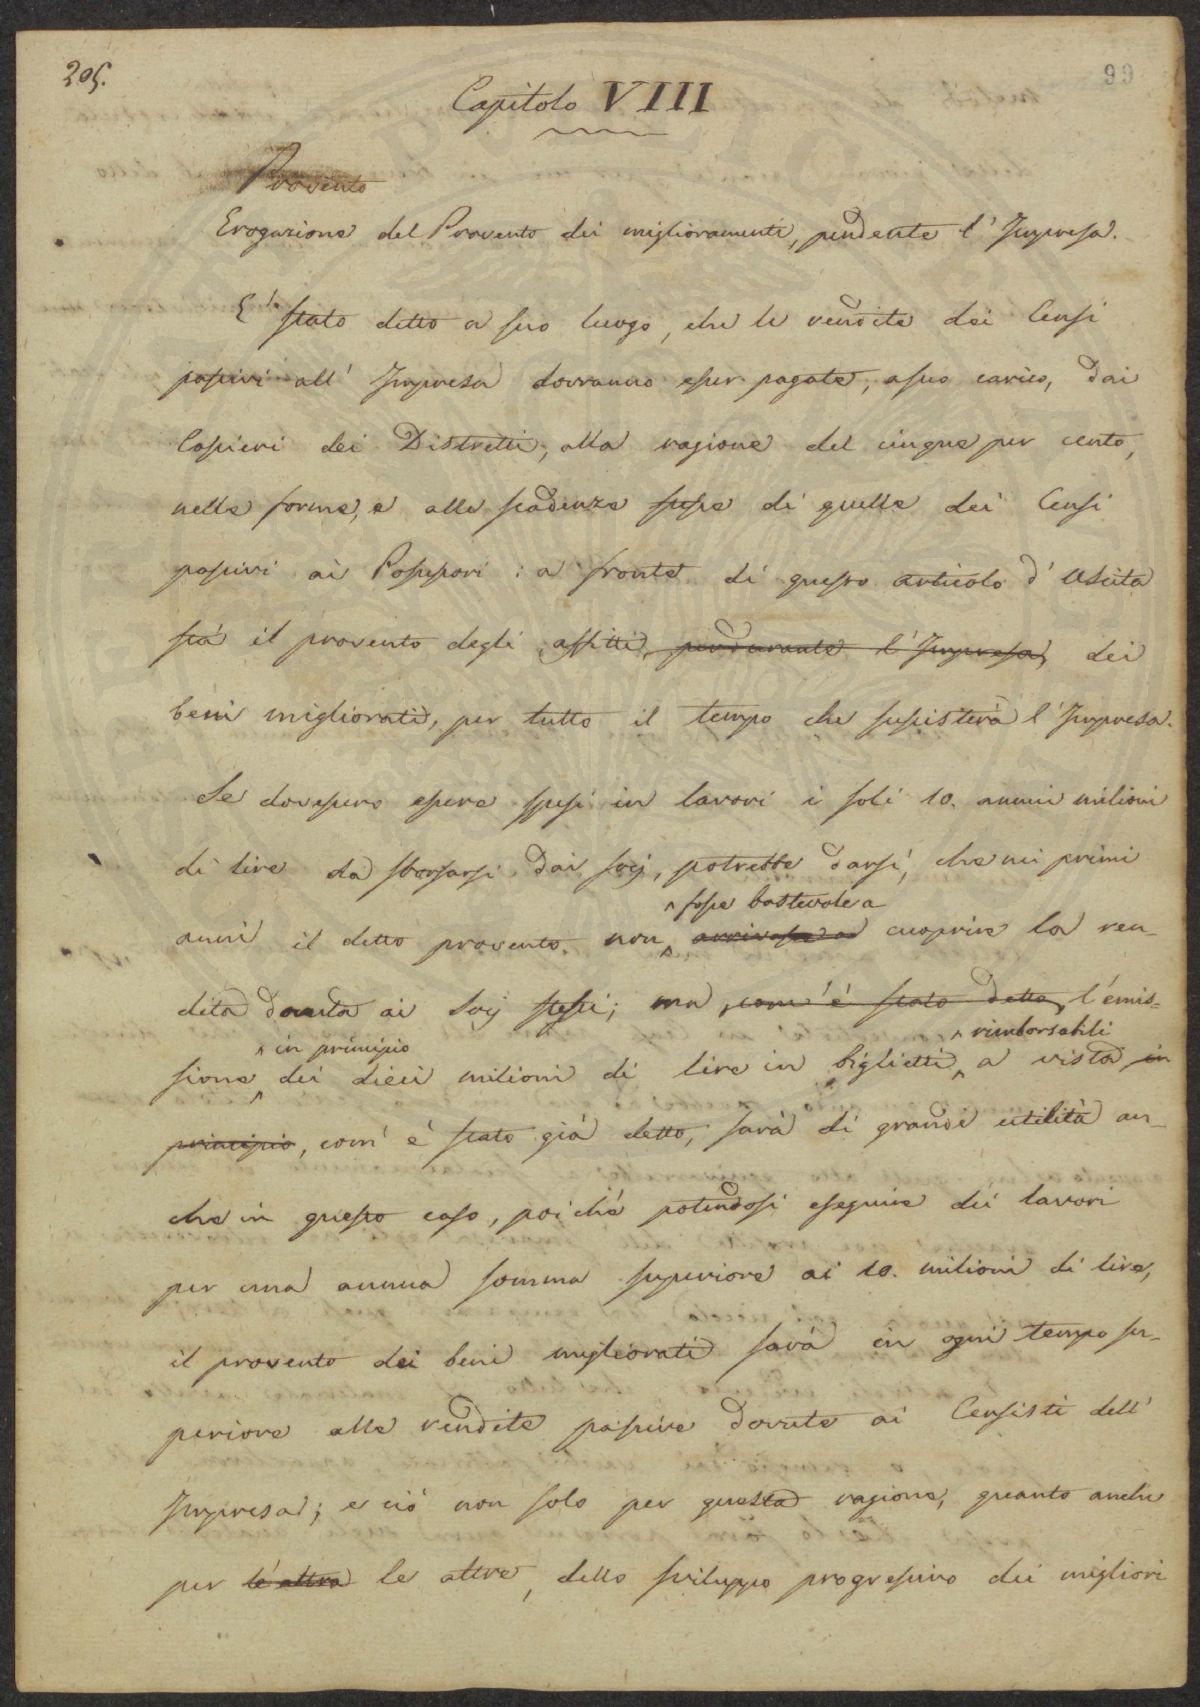 205.
99
Capitolo VIII
Provento
Erogazione del Provento dei miglioramenti, pendente l'Impresa.
E' stato detto a suo luogo, che le rendite dei Censi
passivi all'Impresa dovranno esser pagate, a suo carico, dai
Cassieri dei Distretti, alla ragione del cinque per cento,
nelle forme, e alle scadenze stesse di quelle dei Censi
passivi ai Possessori : a fronte di questo articolo d'uscita
stà il provento degli affitti, perdurante l'Impresa, dei
beni migliorati, per tutto il tempo che sussisterà l'Impresa.
Se dovessero essere spesi in lavori i soli 10. annui milioni
di lire da sborsarsi dai socj, potrebbe darsi, che nei primi
fosse bastevole a
anni il detto provento non arrivasse ad cuoprire la ren-
dita dovuta ai Socj stessi; ma, com'è stato detto, l'emis=
in principio rimborsabili
sione dei dieci milioni di lire in biglietti a vista in
principio, com'è stato già detto, sarà di grande utilità an-
che in questo caso, poichè potendosi eseguire dei lavori
per una annua somma superiore ai 10. milioni di lire,
il provento dei beni migliorati sarà in ogni tempo su-
periore alle rendite passive dovute ai Censisti dell'
Impresa; e ciò non solo per questa ragione, quanto anche
per le altre, dello sviluppo progressivo dei migliori